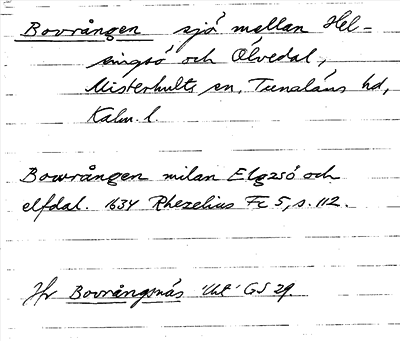 Bovrången sjö mellan Hel-
singsö och Ölvedal,
Misterhults sn, Tunaläns hd,
Kalm. l.
Bowrången milan Elgzsö och
elfdal. 1634 Rhezelius Fc 5, s. 112.
Hr Bovrångsnäs 'Ut' GS 29.